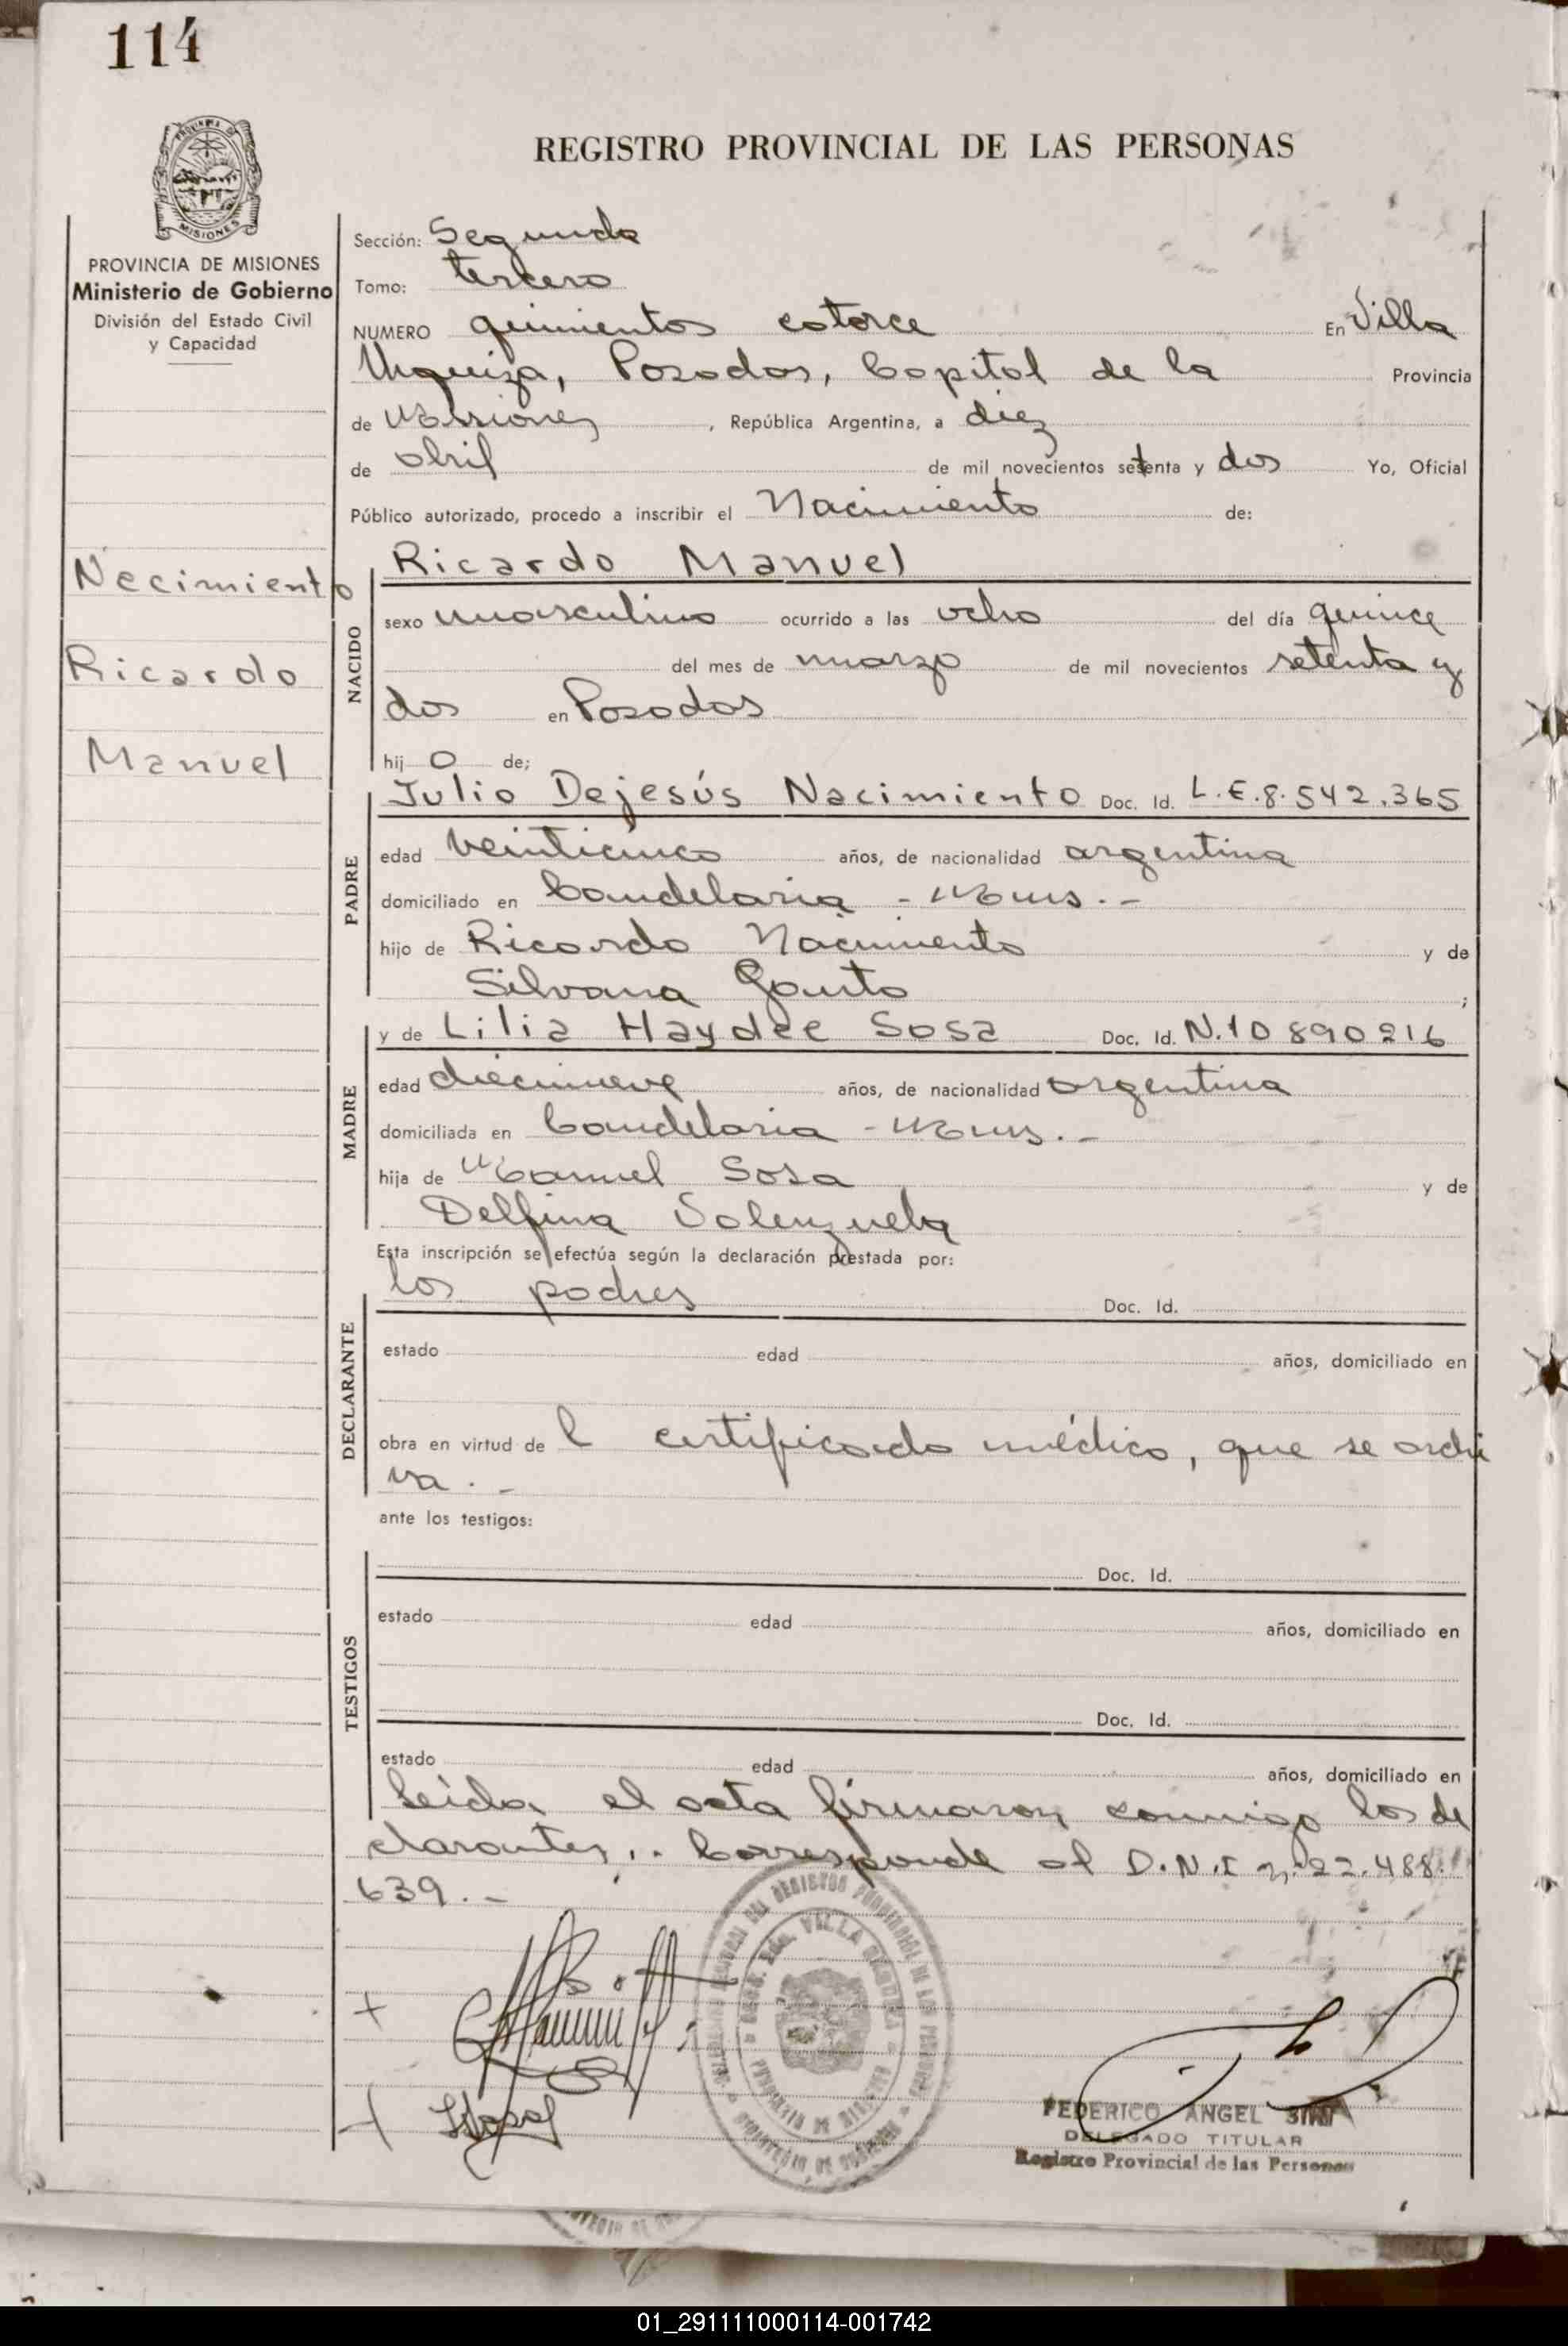 114
PROVINCIA DE MISIONES
REGISTRO PROVINCIAL DE LAS PERSONAS
PROVINCIA DE MISIONES
Ministerio de Gobierno
División del Estado Civil
y Capacidad
Sección: Segunda
Tomo: tercero
NUMERO quinientos catorce En Villa
Urquiza, Posadas, Capital de la Provincia
de Misiones, República Argentina, a diez
de abril de mil novecientos setenta y dos Yo, Oficial
Público autorizado, procedo a inscribir el Nacimiento de:
Necimiento
Ricardo
Manuel
NACIDO
Ricardo Manuel
sexo masculino ocurrido a las ocho del día quince
del mes de marzo de mil novecientos setenta y
dos en Posadas
hij o de;
PADRE
Julio Dejesús Nacimiento Doc. Id. L.E.8.542.365
edad veinticinco años, de nacionalidad argentina
domiciliado en Candelaria - Mnes.-
hijo de Ricardo Nacimiento y de
Silvana Gauto ;
MADRE
y de Lilia Haydee Sosa Doc. Id. N.10890216
edad diecinueve años, de nacionalidad argentina
domiciliada en Candelaria - Mnes.-
hija de Manuel Sosa y de
Delfina Valenzuela
Esta inscripción se efectúa según la declaración prestada por:
DECLARANTE
los padres Doc. Id.
estado edad años, domiciliado en
obra en virtud de l certificado médico, que se archi
va.-
ante los testigos:
TESTIGOS
Doc. Id.
estado edad años, domiciliado en
Doc. Id.
estado edad años, domiciliado en
Leida el acta firmaron conmigo los de
clarantes.. Corresponde al D.N.I n: 22.488.
639.-
FEDERICO ANGEL
DELEGADO TITULAR
Registro Provincial de las Personas
01_291111000114-001742